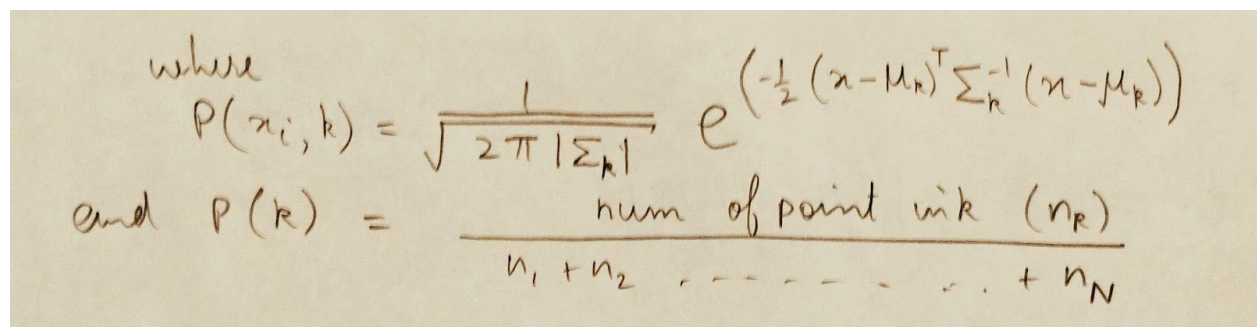 where
P(x_i, k) = \frac{1}{\sqrt{2π |Σ_k|}} e^{(-\frac{1}{2} (x-μ_k)^T Σ_k^{-1} (x-μ_k))}
and P(k) = \frac{num of point in k (n_k)}{n_1 + n_2 ......... + n_N}